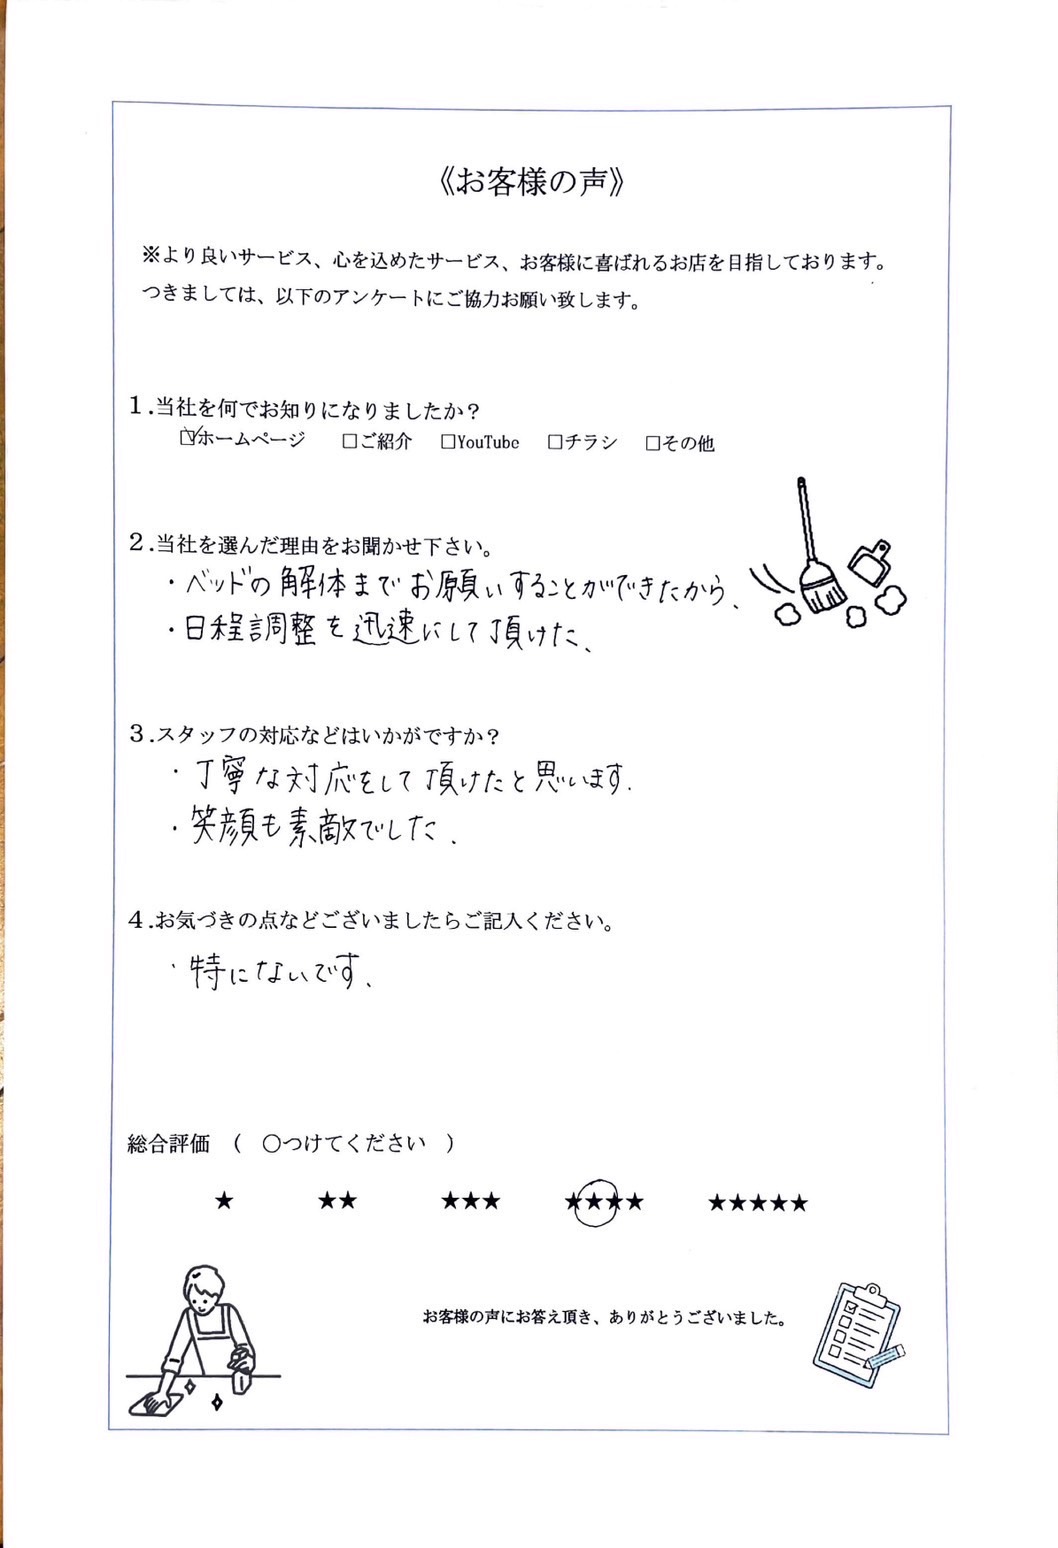 《お客様の声》
※より良いサービス、心を込めたサービス、お客様に喜ばれるお店を目指しております。
つきましては、以下のアンケートにご協力お願い致します。
1.当社を何でお知りになりましたか？
☑ホームページ　□ご紹介　□YouTube　□チラシ　□その他
2.当社を選んだ理由をお聞かせ下さい。
・ベッドの解体までお願いすることができたから、
・日程調整を迅速にして頂けた、
3.スタッフの対応などはいかがですか？
・丁寧な対応をして頂けたと思います.
・笑顔も素敵でした.
4.お気づきの点などございましたらご記入ください。
・特にないです、
総合評価　(　○つけてください　)
★　★★　★★★　★★★★　★★★★★
お客様の声にお答え頂き、ありがとうございました。